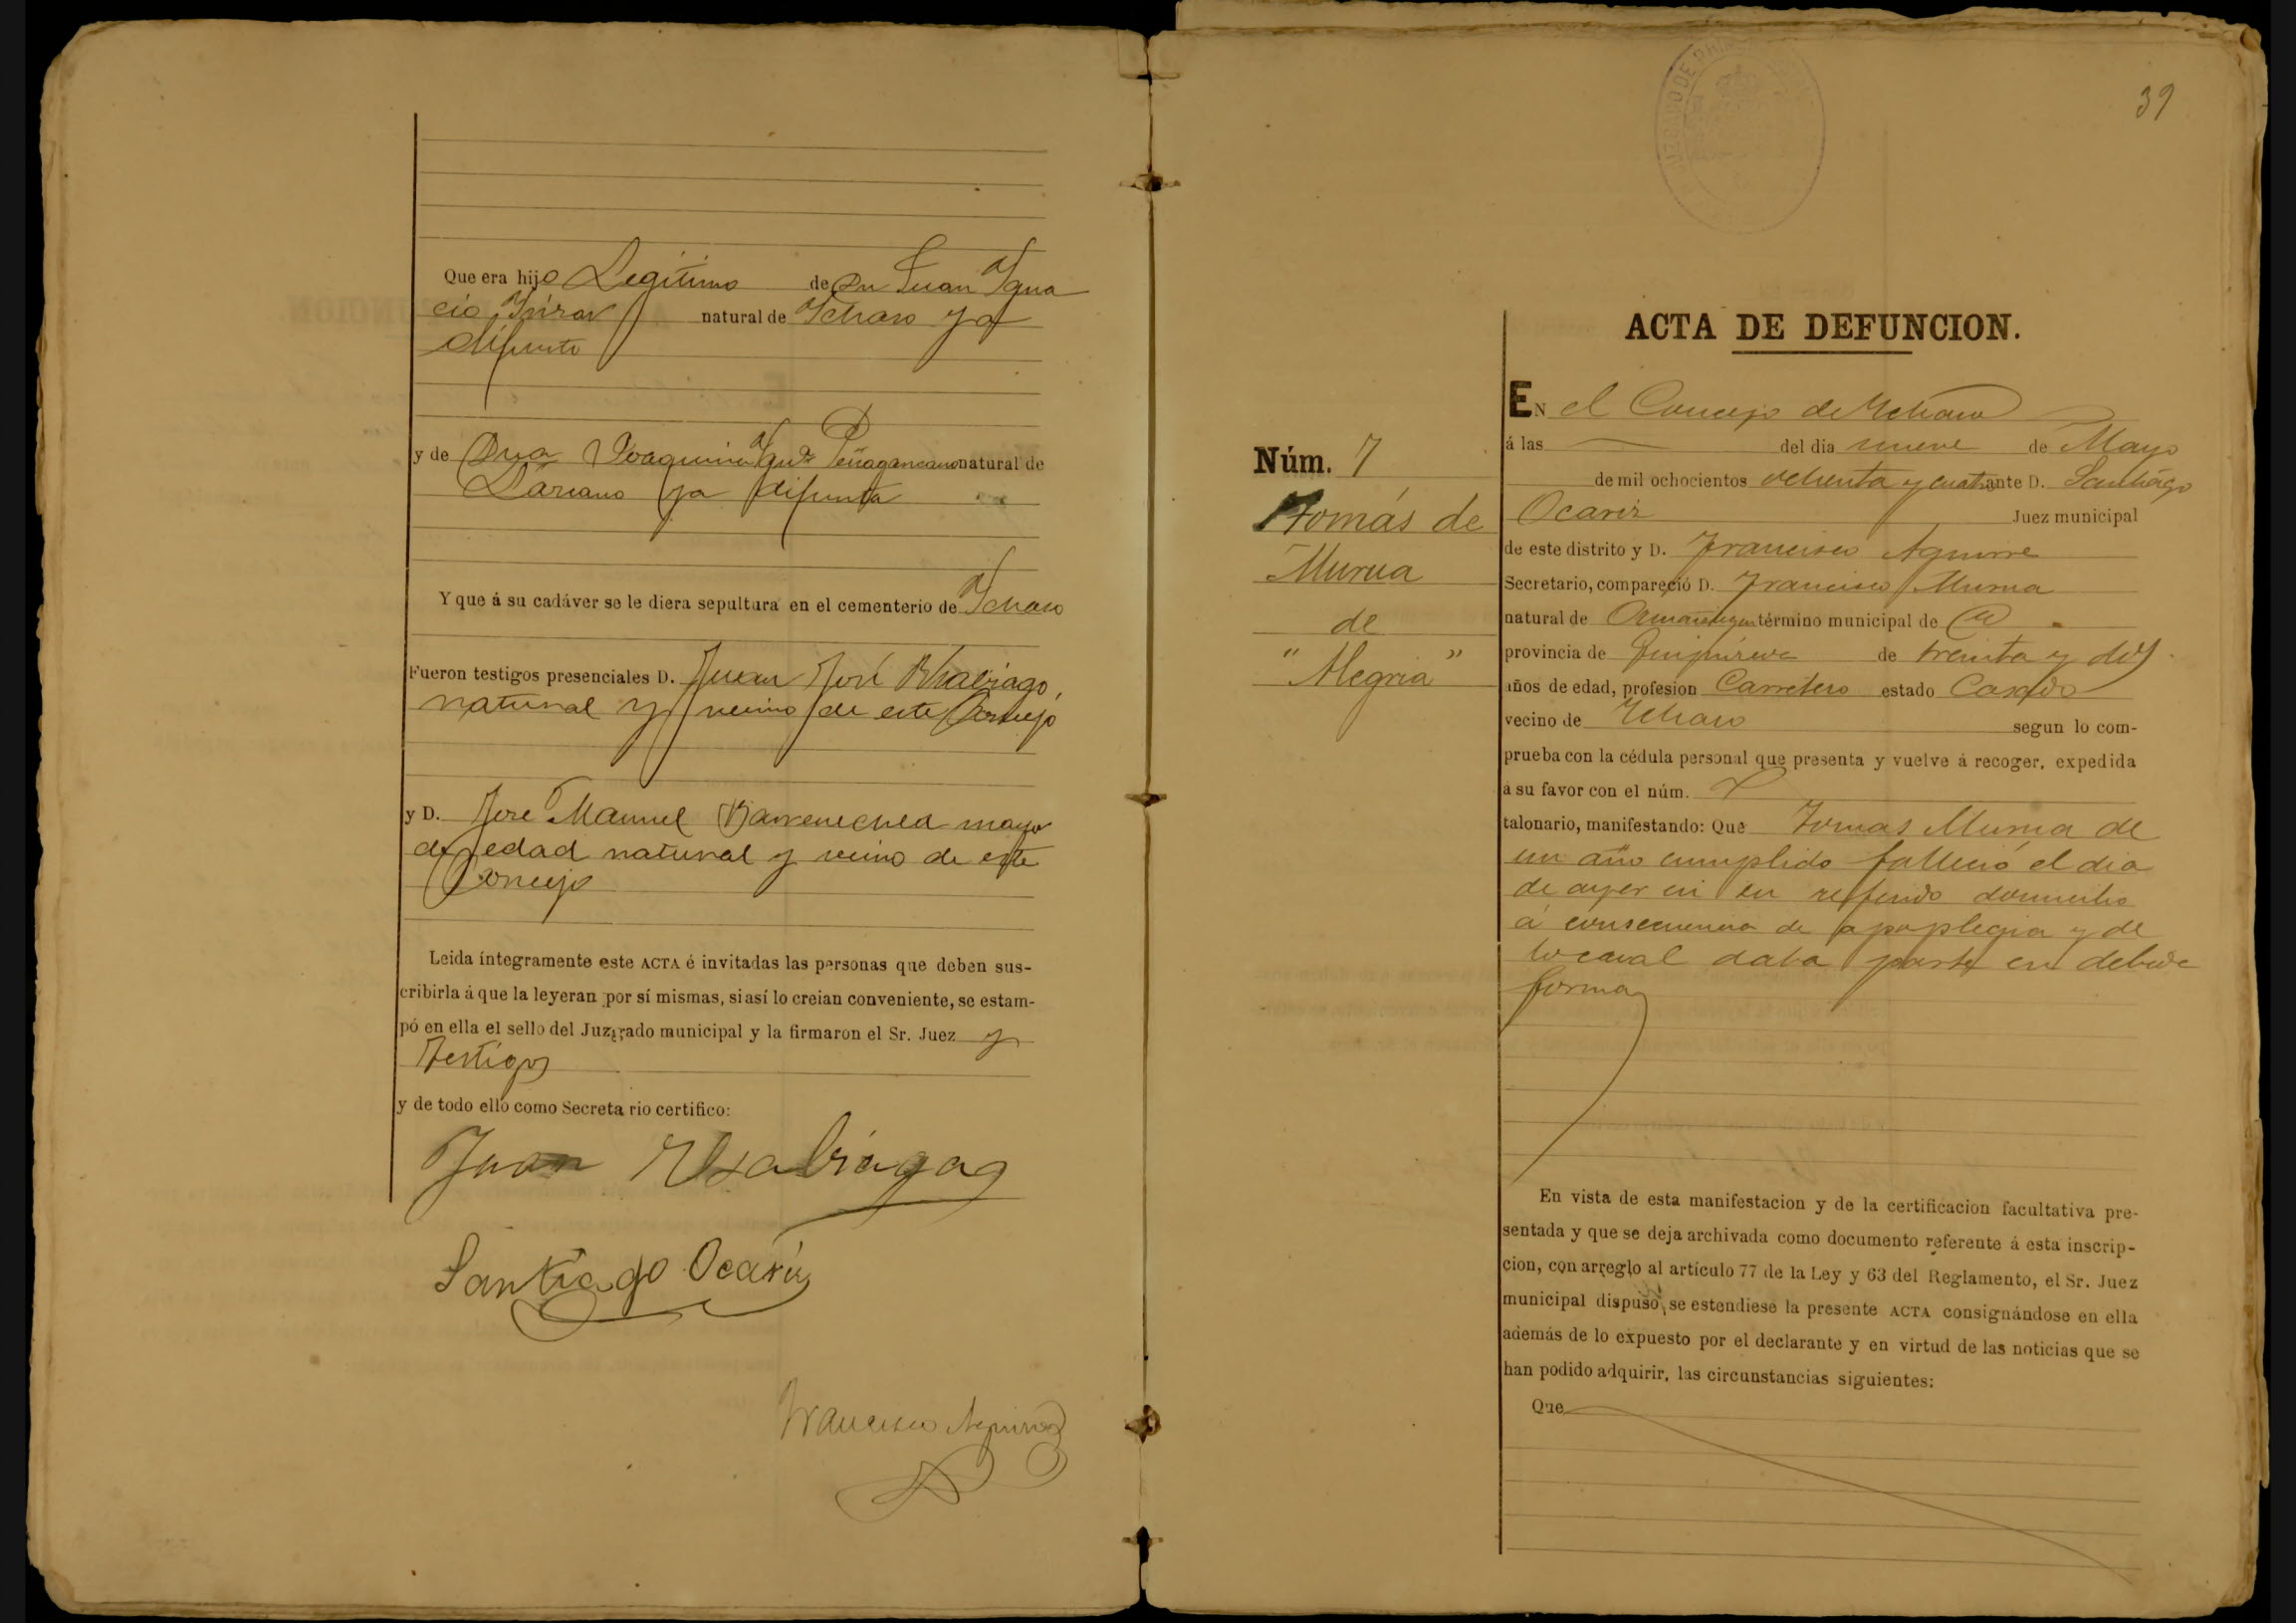 Que era hijo Legitimo de Dn Juan Ygna
cio natural de Ychaso ya
difunto
y de Dña Joaquina Peñagaricano natural de
Lazcano ya difunta
Y que á su cadáver se le diera sepultura en el cementerio de Ychaso
Fueron testigos presenciales D. Juan José Usabiaga,
natural y vecino de este Concejo
y D. José Manuel Barrenechea mayor
de edad natural y vecino de este
Concejo
Leida íntegramente este ACTA é invitadas las personas que deben sus-
cribirla á que la leyeran por sí mismas, si así lo creian conveniente, se estam-
pó en ella el sello del Juzgado municipal y la firmaron el Sr. Juez y
testigos
y de todo ello como Secretario certifico:
Juan Usabiaga
Santiago Ocariz
Francisco Aguirre
39
ACTA DE DEFUNCION.
EN el Concejo de Ychaso
á las del dia nueve de Mayo
de mil ochocientos ochenta y cuatro ante D. Santiago
Ocariz Juez municipal
de este distrito y D. Francisco Aguirre
Secretario, compareció D. Francisco Murua
natural de Ormaiztegui término municipal de
provincia de Guipúzcoa de treinta y dos
años de edad, profesion Carretero estado Casado
vecino de Ychaso segun lo com-
prueba con la cédula personal que presenta y vuelve á recoger, expedida
á su favor con el núm.
talonario, manifestando: Que Tomas Murua de
un año cumplido falleció el dia
de ayer en su referido domicilio
á consecuencia de apoplegia y de
lo cual daba parte en debida
forma
En vista de esta manifestacion y de la certificacion facultativa pre-
sentada y que se deja archivada como documento referente á esta inscrip-
cion, con arreglo al artículo 77 de la Ley y 63 del Reglamento, el Sr. Juez
municipal dispuso se estendiese la presente ACTA consignándose en ella
además de lo expuesto por el declarante y en virtud de las noticias que se
han podido adquirir, las circunstancias siguientes:
Que
Núm. 7
Tomás de
Murua
de
"Alegria"